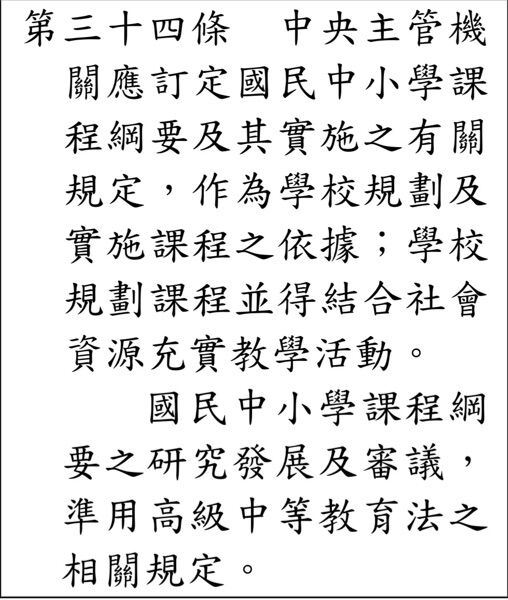 第三十四條　中央主管機
關應訂定國民中小學課
程綱要及其實施之有關
規定，作為學校規劃及
實施課程之依據；學校
規劃課程並得結合社會
資源充實教學活動。
國民中小學課程綱
要之研究發展及審議，
準用高級中等教育法之
相關規定。